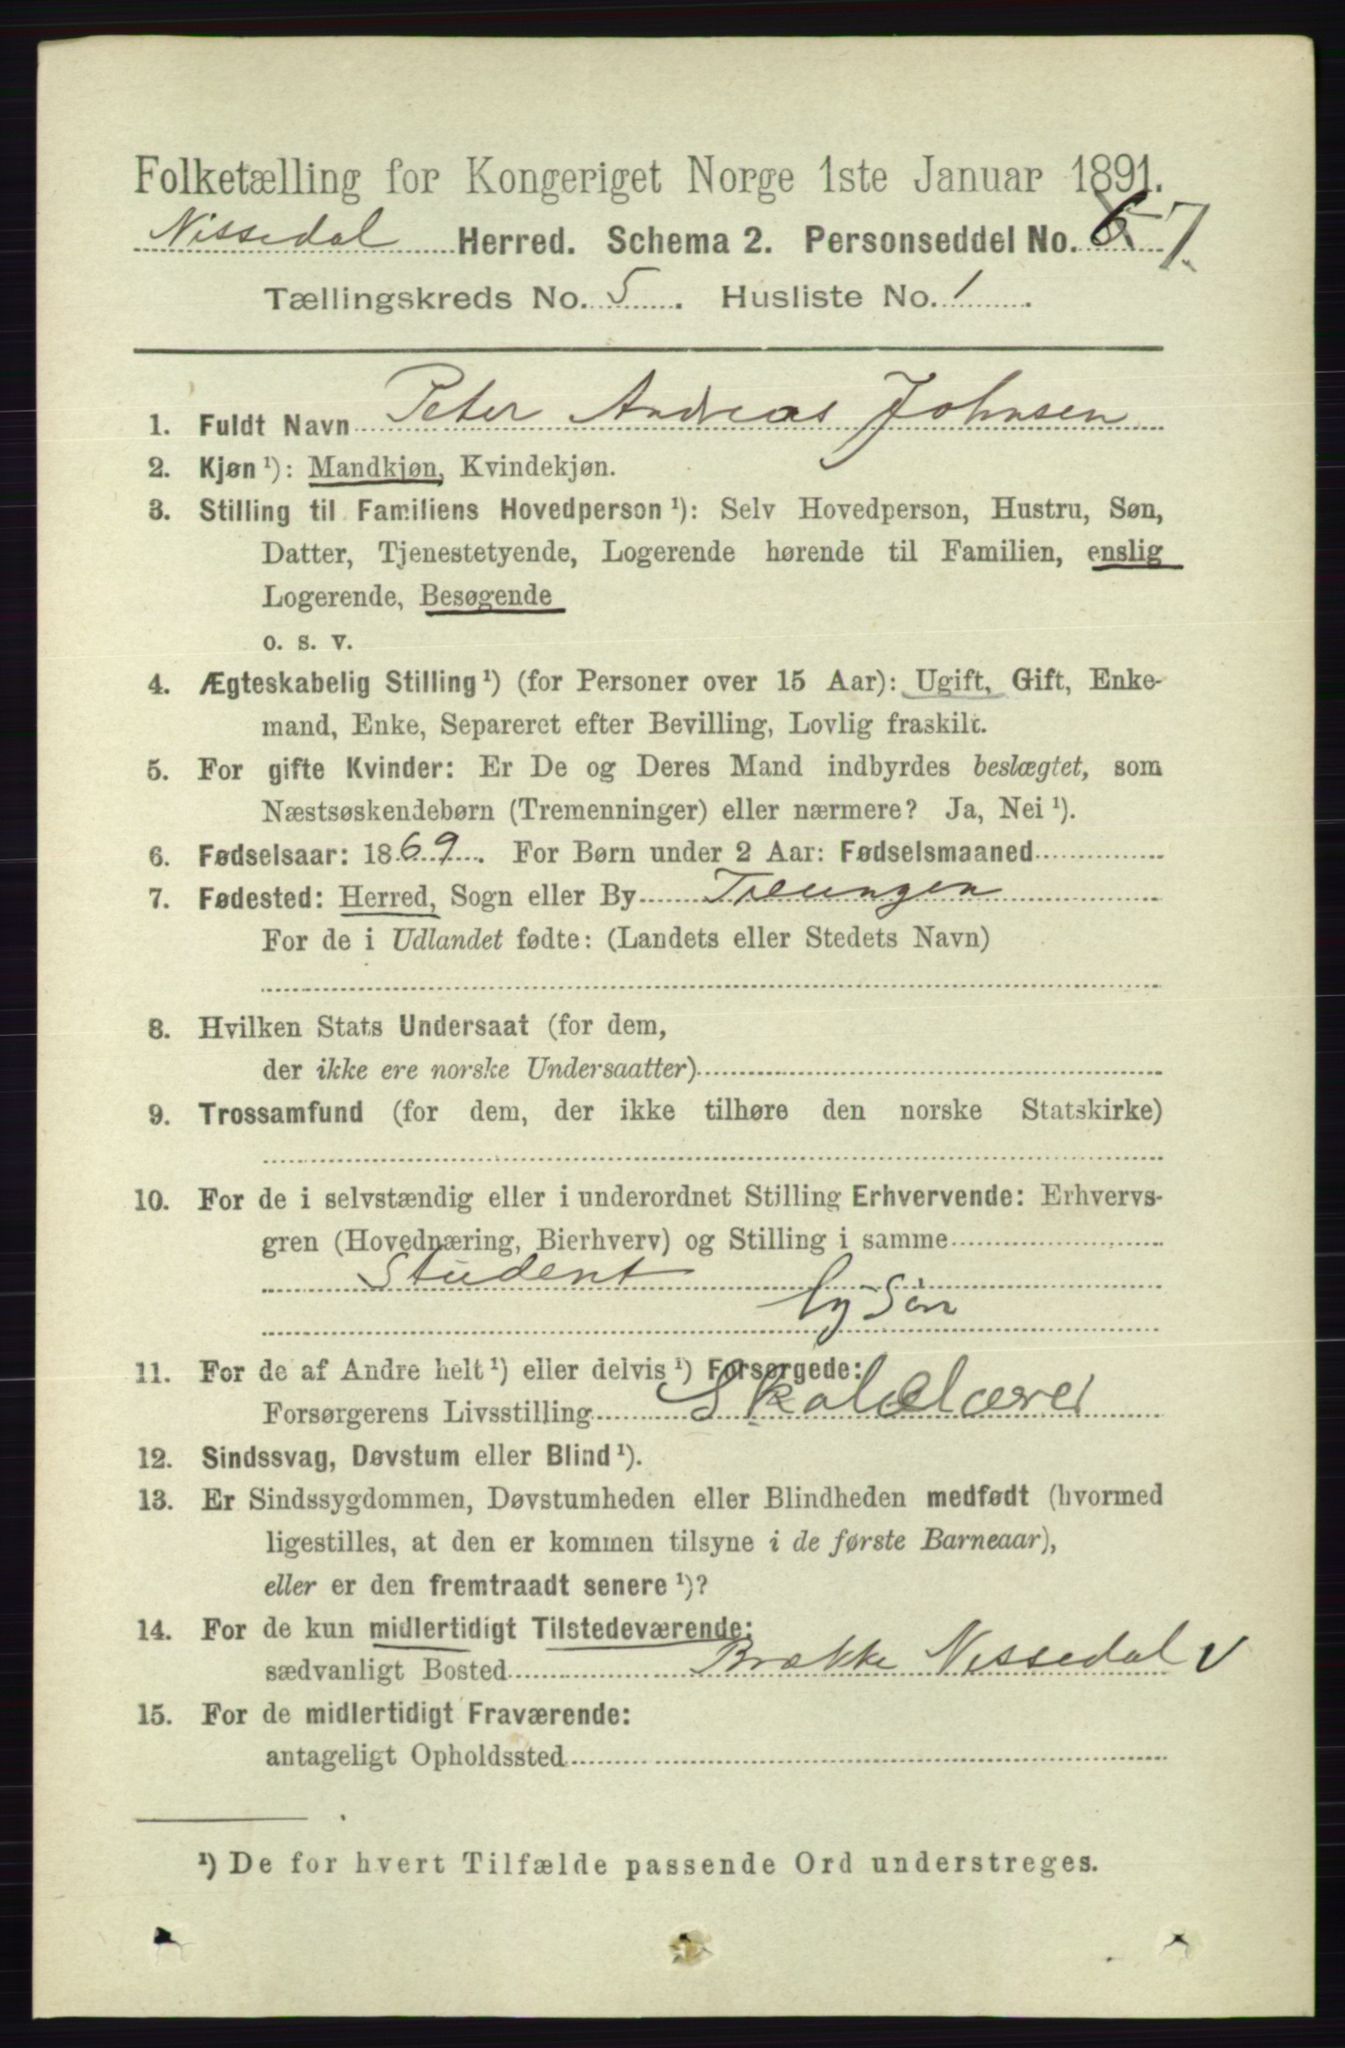 Folketælling for Kongeriget Norge 1ste Januar 1891.
Nissedal Herred. Schema 2. Personseddel No. 6 7
Tællingskreds No. 5. Husliste No. 1.
1. Fuldt Navn Peter Andreas Johnsen
2. Kjøn ¹): Mandkjøn, Kvindekjøn.
3. Stilling til Familiens Hovedperson ¹): Selv Hovedperson, Hustru, Søn,
Datter, Tjenestetyende, Logerende hørende til Familien, enslig
Logerende, Besøgende
o. s. v.
4. Ægteskabelig Stilling ¹) (for Personer over 15 Aar): Ugift, Gift, Enke-
mand, Enke, Separeret efter Bevilling, Lovlig fraskilt.
5. For gifte Kvinder: Er De og Deres Mand indbyrdes beslægtet, som
Næstsøskendebørn (Tremenninger) eller nærmere? Ja, Nei ¹).
6. Fødselsaar: 1869. For Børn under 2 Aar: Fødselsmaaned
7. Fødested: Herred, Sogn eller By Treungen
For de i Udlandet fødte: (Landets eller Stedets Navn)
8. Hvilken Stats Undersaat (for dem,
der ikke ere norske Undersaatter)
9. Trossamfund (for dem, der ikke tilhøre den norske Statskirke)
10. For de i selvstændig eller i underordnet Stilling Erhvervende: Erhvervs-
gren (Hovednæring, Bierhverv) og Stilling i samme
Student
Søn
11. For de af Andre helt ¹) eller delvis ¹) Forsørgede:
Forsørgerens Livsstilling Skolelærer
12. Sindssvag, Døvstum eller Blind ¹).
13. Er Sindssygdommen, Døvstumheden eller Blindheden medfødt (hvormed
ligestilles, at den er kommen tilsyne i de første Barneaar),
eller er den fremtraadt senere ¹)?
14. For de kun midlertidigt Tilstedeværende:
sædvanligt Bosted Brække Nissedal v
15. For de midlertidigt Fraværende:
antageligt Opholdssted
¹) De for hvert Tilfælde passende Ord understreges.